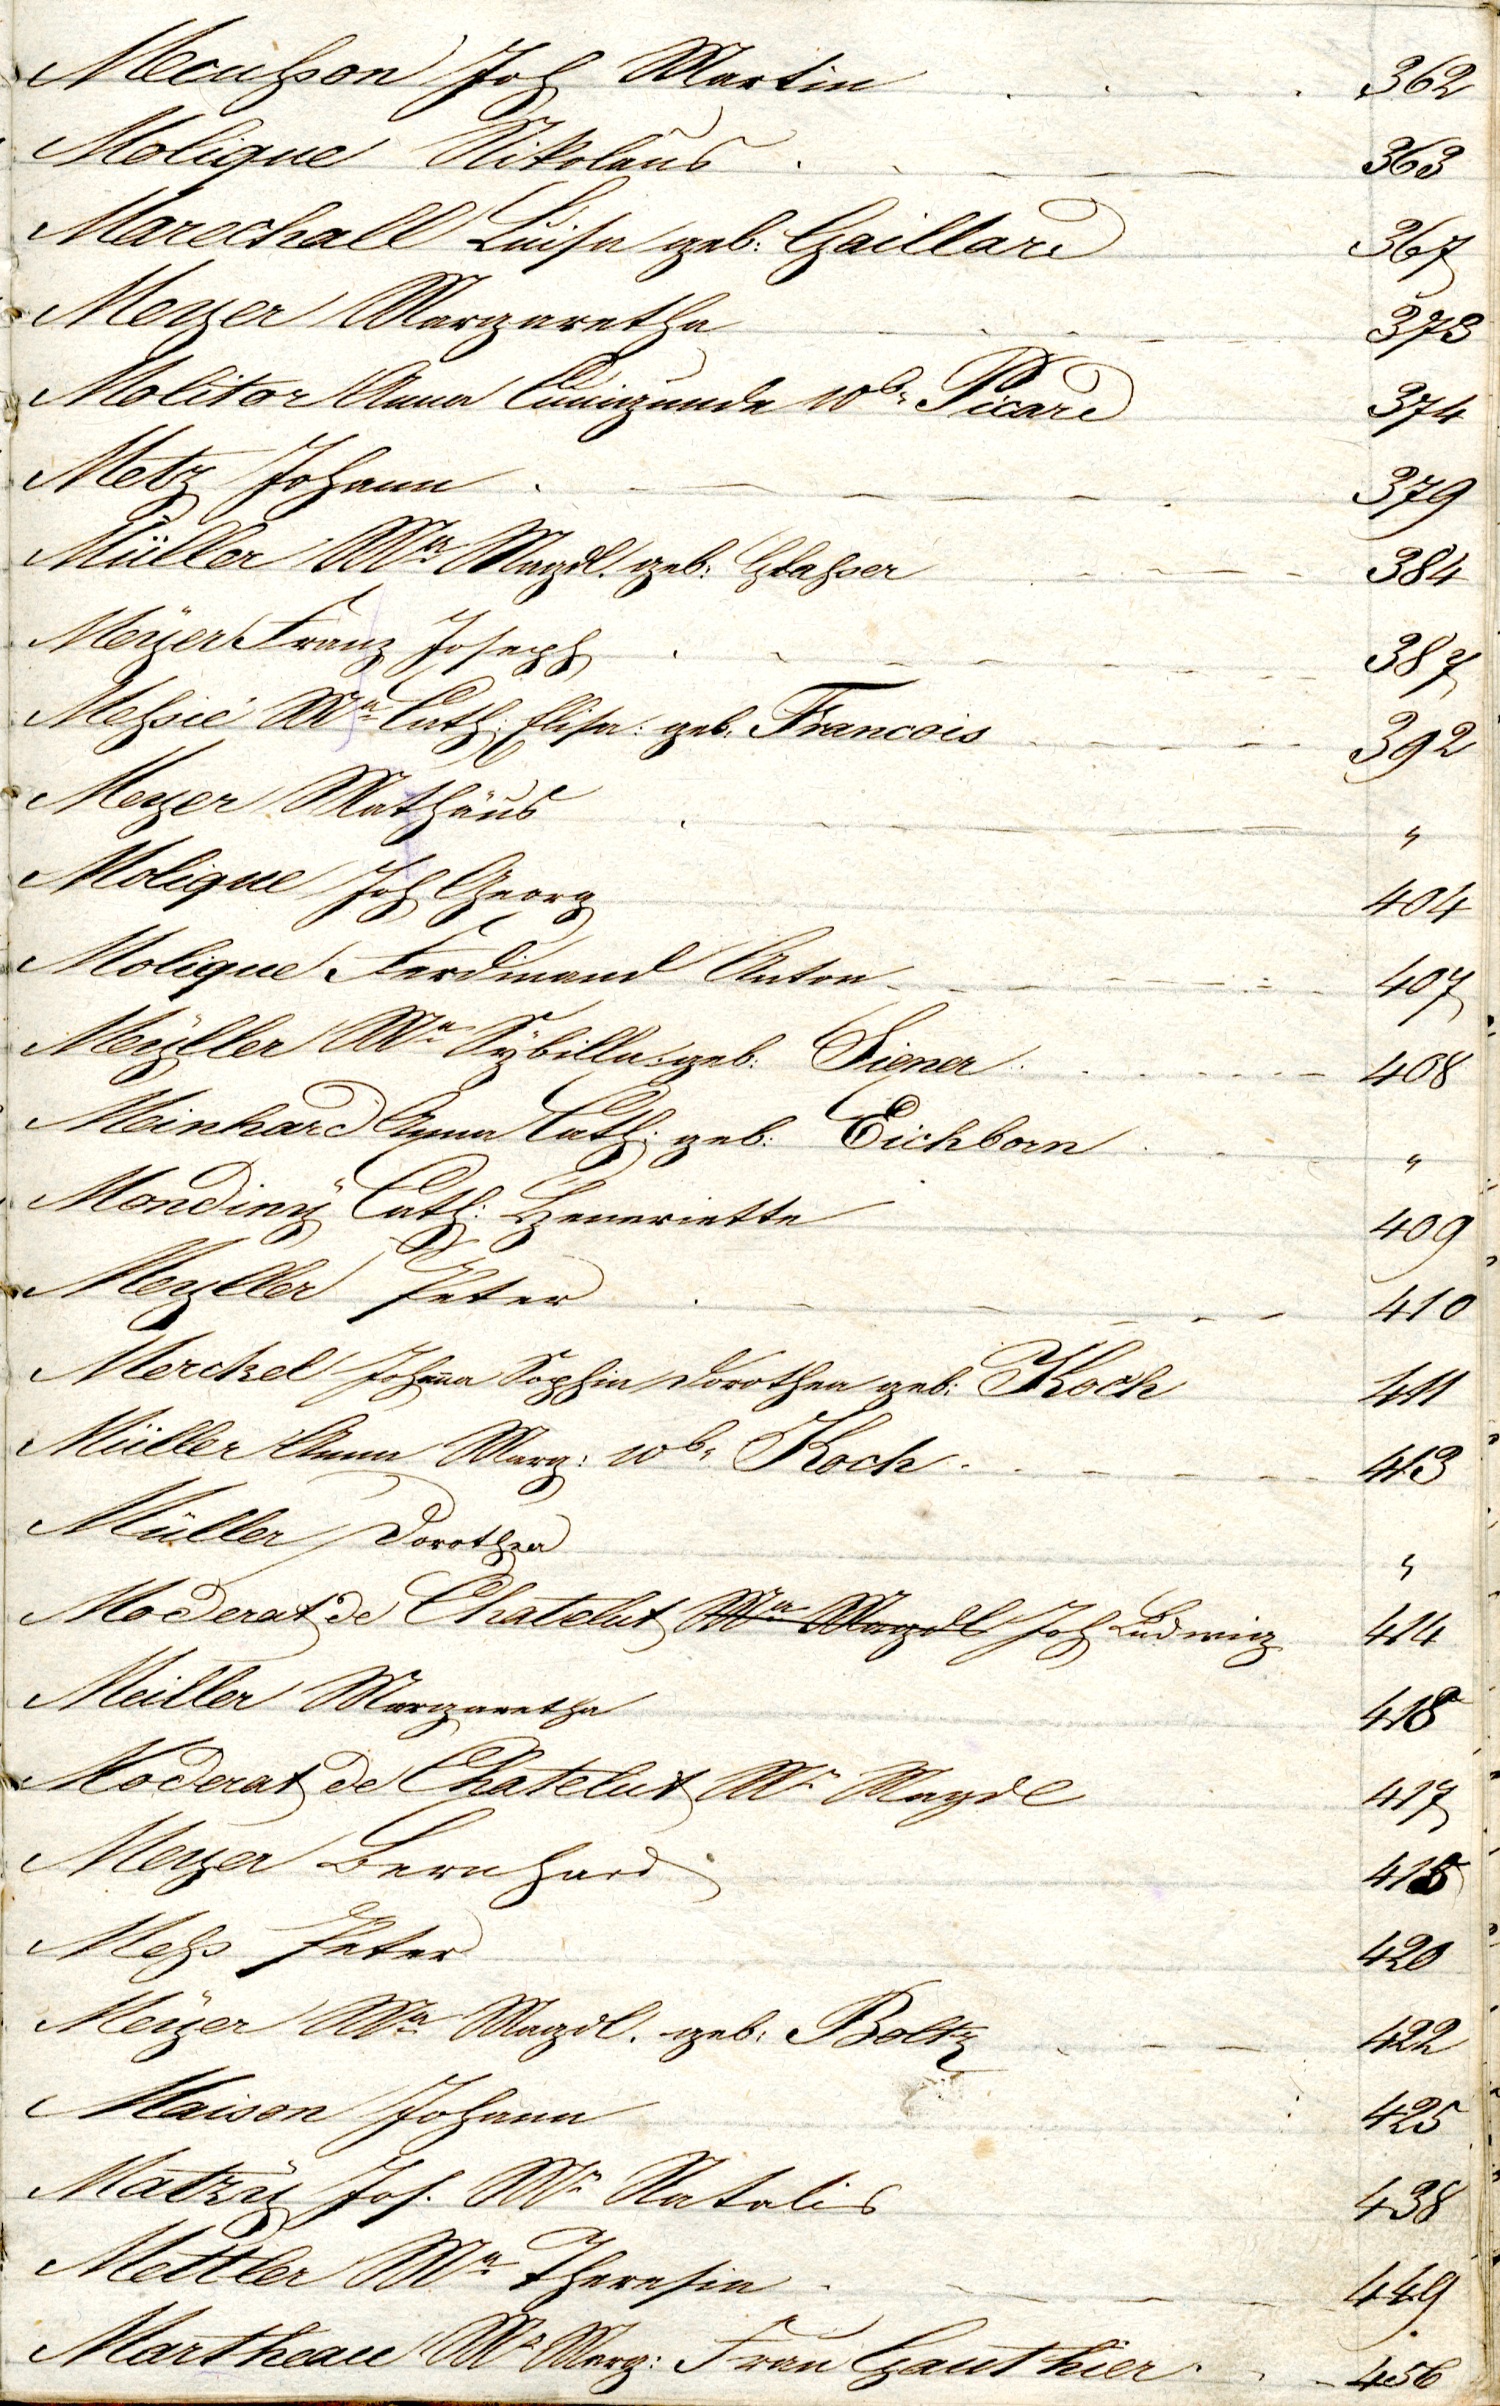 Mousson Joh Martin . . . . 362
Molique Nikolaus . . - - - - 363
Marechall Luisa geb: Gaillard 367
Meyer Margaretha - - - - - 373
Molitor Anna Cunigunde wb. Picard 374
Metz Johann . - - - - - . 379
Müller Ma Magdl. geb: Glasser - - - - 384
Meÿer Franz Joseph . - - - - - - 387
Messié Ma Cath: Elisa: geb. Francois - - - - 392
Meyer Mathäus . - - - - "
Molique Joh Georg 404
Molique Ferdinand Anton - - - - - - 407
Meÿller Ma Sÿbilla geb: Siener . . - - - - 408
Meinhard Anna Cath: geb: Eichborn . . - "
Mondinÿ Cath: Henneriette 409
Meyller Peter . - - - - - 410
Merckel Johanna Sophia Dorothea geb: Koch 411
Müller Anna Marg: wb. Koch . . - - - - 413
Müller Dorothea "
Moderat de Chatelut Ma Magdl Joh Ludwig 414
Meiller Margaretha 418
Moderat de Chatelut Ma Magdl 417
Meyer Bernhard 415
Mess Peter 420
Meÿer Ma Magdl. geb: Boltz . - - - 422
Maison Johann : 425
Matzÿ Jos. Ma Natalis 438
Mettler Ma Theresia . - - - - 449
Martheau Ma Marg: Frau Gauthier . . - 456